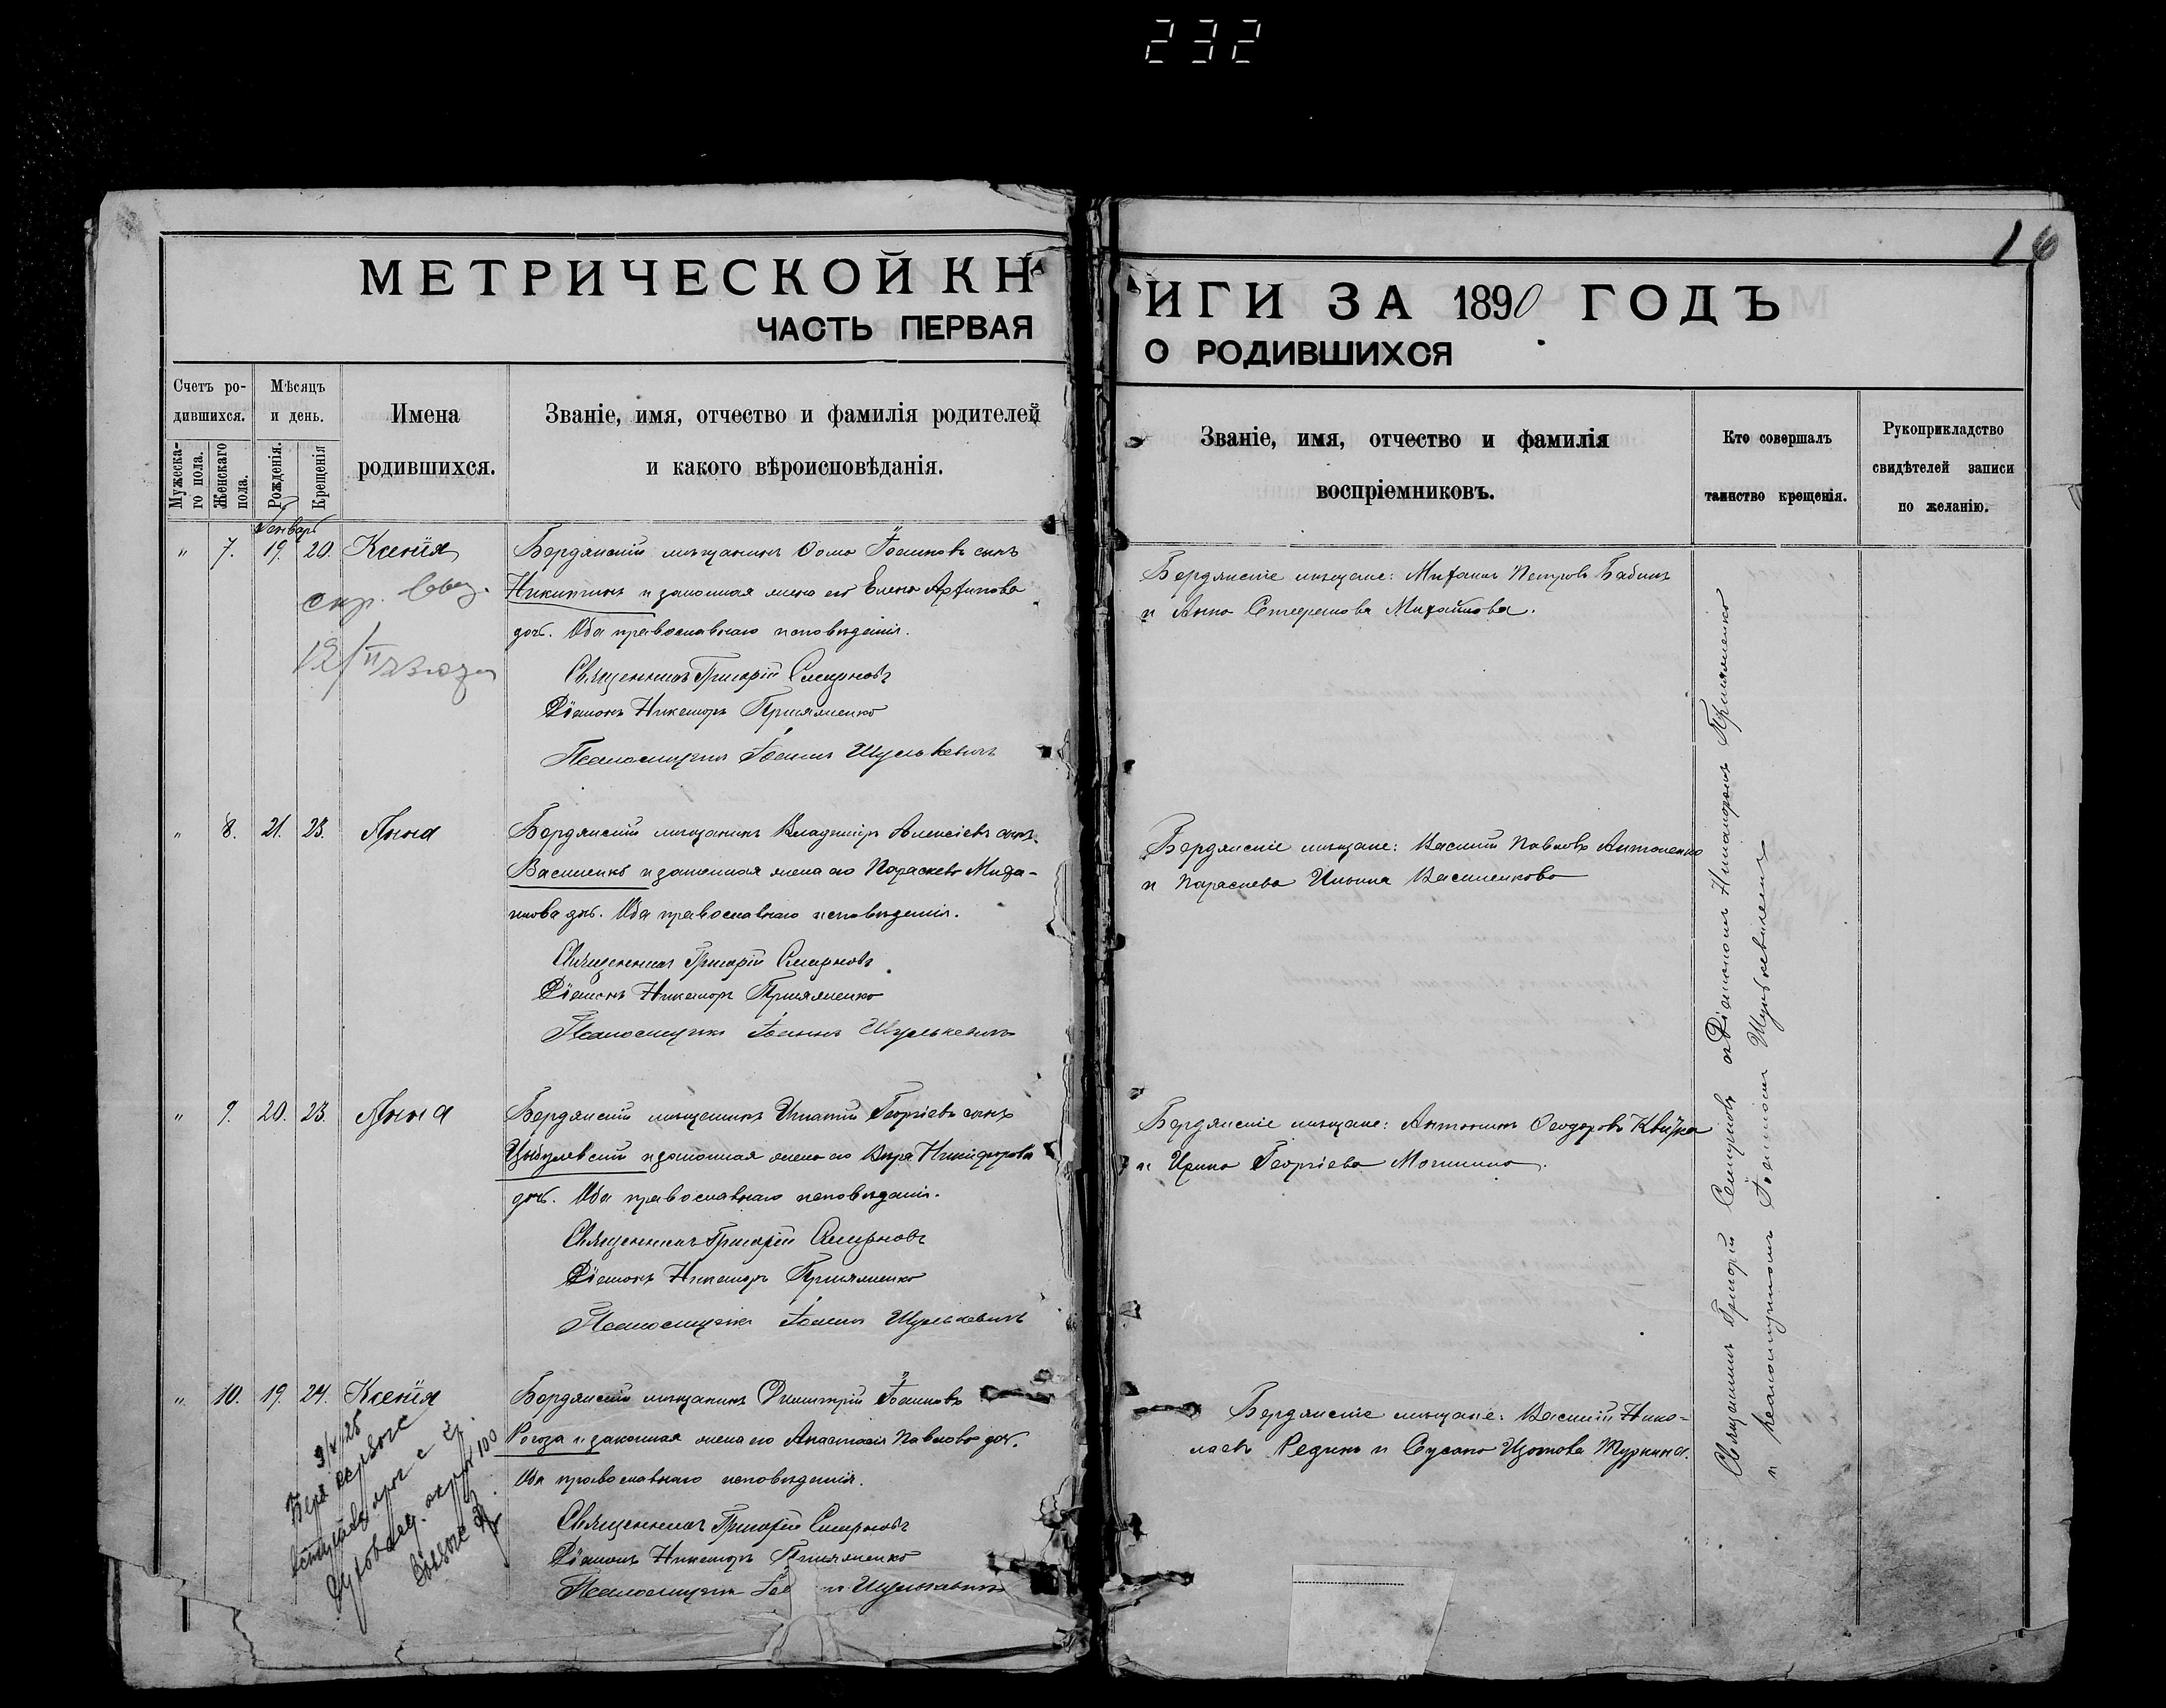 232
16
МЕТРИЧЕСКОЙ КН
ИГИ ЗА 1890 ГОДЪ
ЧАСТЬ ПЕРВАЯ
О РОДИВШИХСЯ
Счетъ ро-
дившихся.
Мужеска-
го пола.
Женскаго
пола.
Мѣсяцъ
и день.
Рожденія.
Крещенія
Имена
родившихся.
Званіе, имя, отчество и фамилія родителей
и какого вѣроисповѣданія.
Званіе, имя, отчество и фамилія
воспріемниковъ.
Кто совершалъ
таинство крещенія.
Рукоприкладство
свидѣтелей записи
по желанію.
Январь
" 7. 19. 20. Ксенія
Бердянскій мѣщанинъ Ѳома Іоанновъ сынъ
Никитинъ и законная жена его Елена Архипова
дочь. Оба православнаго исповѣданія.
Священникъ Григорій Смирновъ
Діаконъ Никаноръ Пригяженко
Псаломщикъ Іоаннъ Шулькевичъ
Бердянскіе мѣщане: Михаилъ Петровъ Бабинъ
и Анна Стефанова Михайлова.
" 8. 21. 23. Анна
Бердянскій мѣщанинъ Владиміръ Алексіевъ сынъ
Василенко и законная жена его Параскева Миха-
илова дочь. Оба православнаго исповѣданія.
Священникъ Григорій Смирновъ
Діаконъ Никаноръ
Псаломщикъ Іоаннъ Шулькевичъ
Бердянскіе мѣщане: Василій Павловъ Антоненко
и Параскева Ильина Василенкова
" 9. 20. 23. Анна
Бердянскій мѣщанинъ Игнатій Георгіевъ сынъ
Цыбулевскій и законная жена его Вѣра Никифорова
дочь. Оба православнаго исповѣданія.
Священникъ Григорій Смирновъ
Діаконъ Никаноръ
Псаломщикъ Іоаннъ Шулькевичъ
Бердянскіе мѣщане: Антонинъ Ѳеодоровъ Квитка
и Ирина Георгіева
" 10. 19. 24. Ксенія
Бердянскій мѣщанинъ Димитрій Іоанновъ
Рогоза и законная жена его Анастасія Павлова доч.
Оба православнаго исповѣданія.
Священникъ Григорій Смирновъ
Діаконъ Никаноръ
Псаломщикъ Шулькевичъ
Бердянскіе мѣщане: Василій Нико-
лаевъ Рединъ и Сусанна Изотова Журкина.
Священникъ Григорій Смирновъ съ Діакономъ Никаноромъ
и псаломщикомъ Іоанномъ Шулькевичемъ